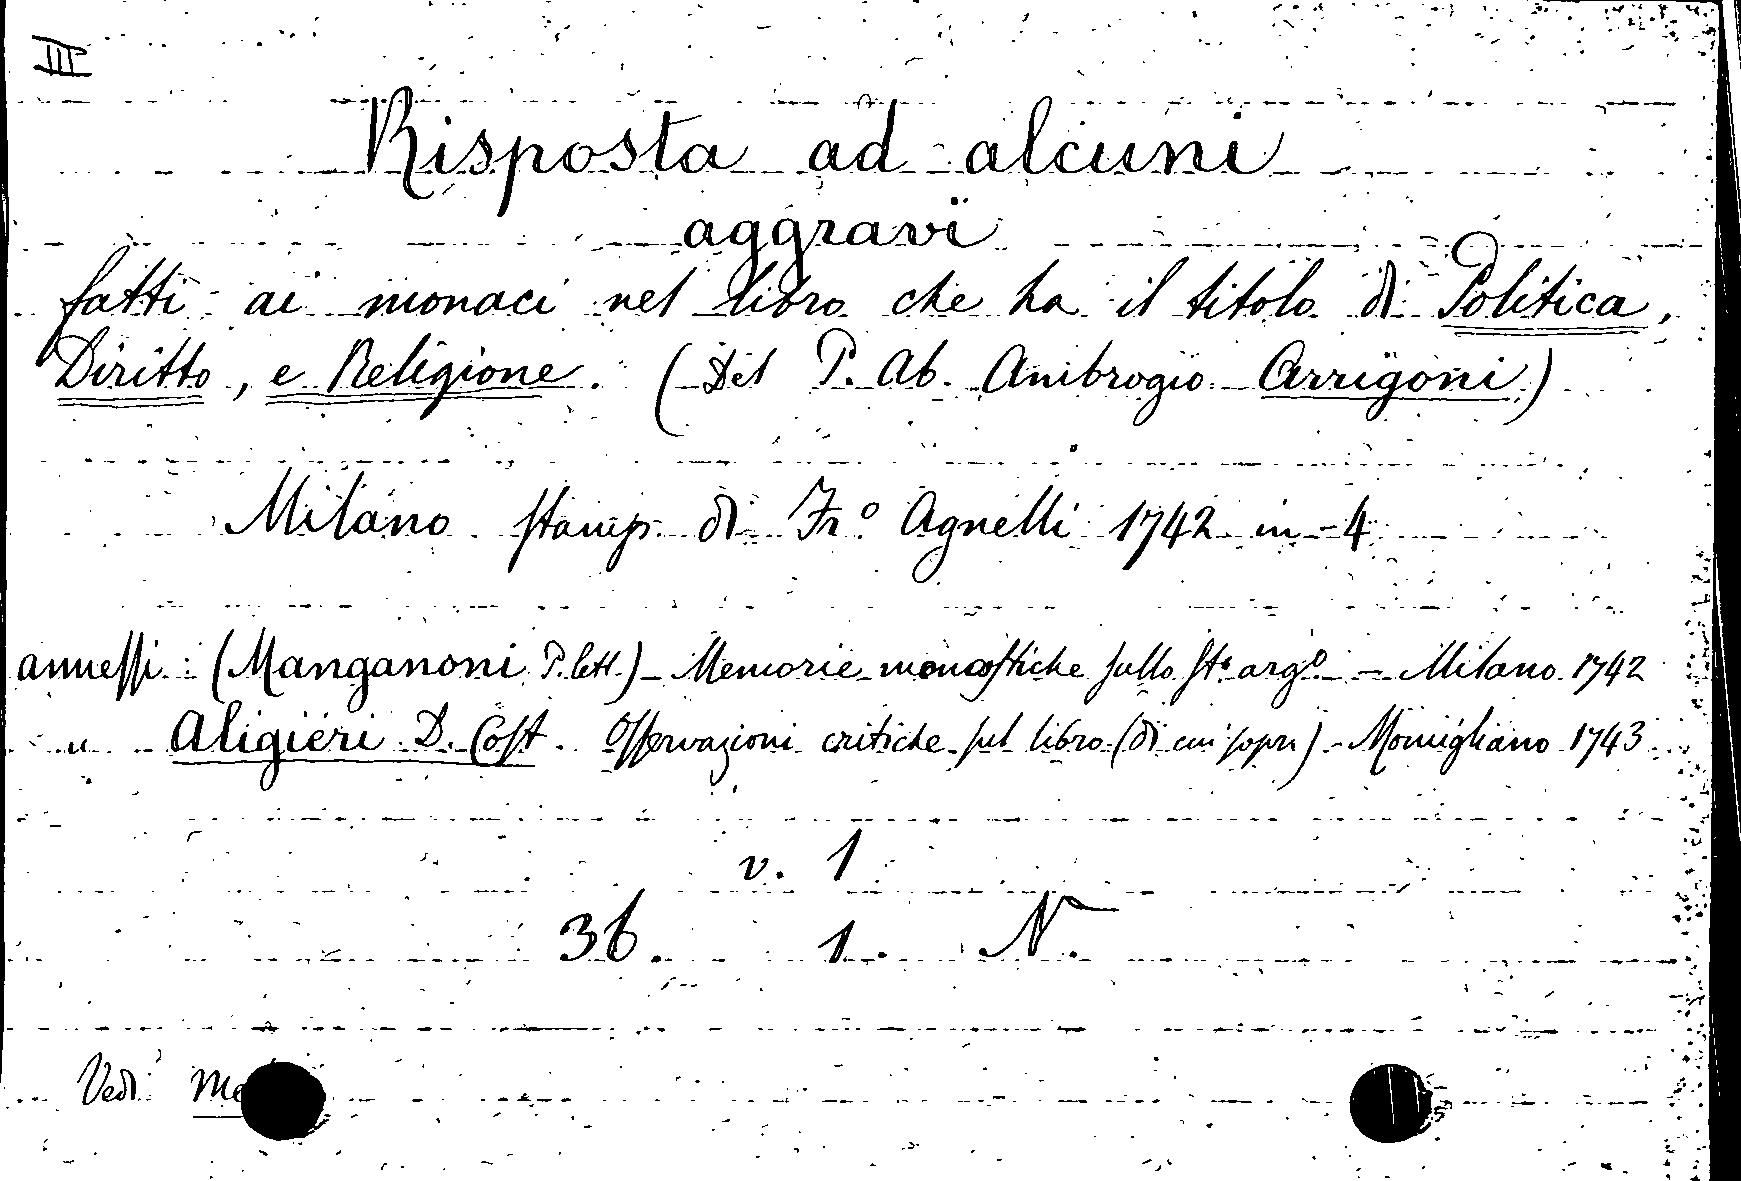 III
Risposta ad alcuni
aggravi
fatti ai monaci nel libro che ha il titolo di Politica,
Diritto, e Religione. (Del P. Ab. Ambrogio Arrigoni)
Milano stamp. di Fr.º Agnelli 1742 in-4
annessi: (Manganoni P. lett.) - Memorie monastiche sullo st.º arg.º - Milano 1742
" Aligieri D. Cost. Osservazioni critiche sul libro (di cui sopra) - Momigliano 1743
v. 1
36. 1. N.
Vedi